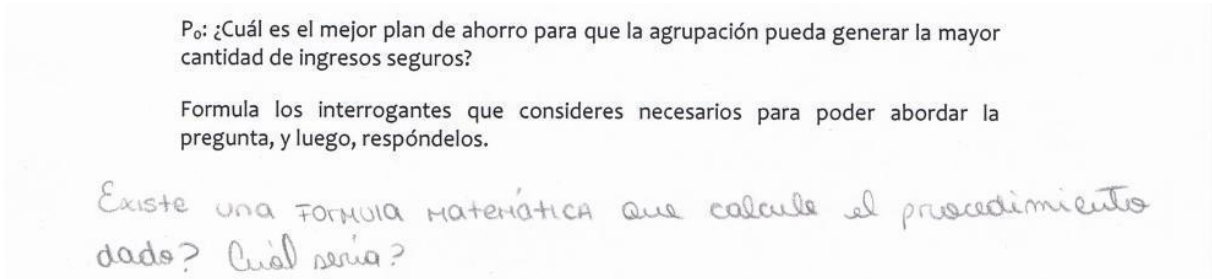 P₀: ¿Cuál es el mejor plan de ahorro para que la agrupación pueda generar la mayor
cantidad de ingresos seguros?
Formula los interrogantes que consideres necesarios para poder abordar la
pregunta, y luego, respóndelos.
Existe una FORMULA MATEMÁTICA que calcule el procedimiento
dado? Cuál sería?